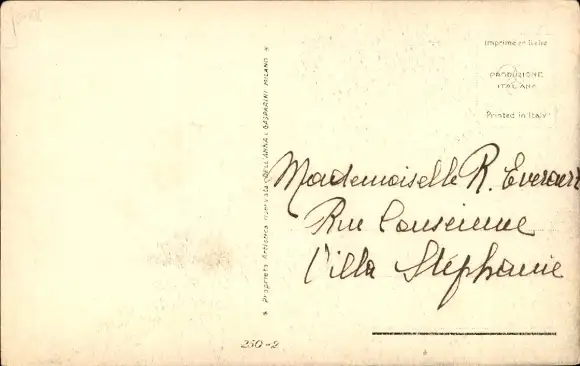 Imprimé en Italie
PRODUZIONE
ITALIANA
Printed in Italy
Proprietà Artistica riservata DELL'ANNA & GASPARINI MILANO
Mademoiselle R. Everaert
Rue
Villa Stéphanie
250-2